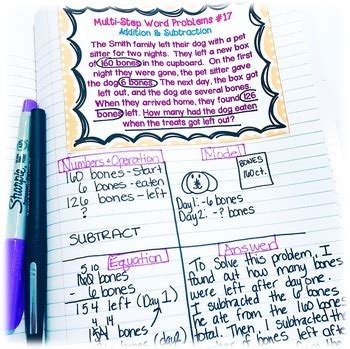 Multi-Step Word Problems #17
Addition & Subtraction
The Smith family left their dog with a pet
sitter for two nights. They left a new box
of 160 bones in the cupboard. On the first
night they were gone, the pet sitter gave
the dog 6 bones. The next day, the box got
left out, and the dog ate several bones.
When they arrived home, they found 126
bones left. How many had the dog eaten
when the treats got left out?
Numbers & Operation
160 bones - Start
6 bones - eaten
126 bones - left
?
SUBTRACT
Model
BONES
160ct.
Day 1: -6 bones
Day 2: -? bones
Equation
5 10
160 bones
- 6 bones
154 left (Day 1)
4 14
154 bones
(day 2)
Answer
To solve this problem, I
found out how many bones
were left after day one.
I subtracted the 6 bones
he ate from the 160 bones
total. Then, I subtracted the
of bones left from the
Sharpie